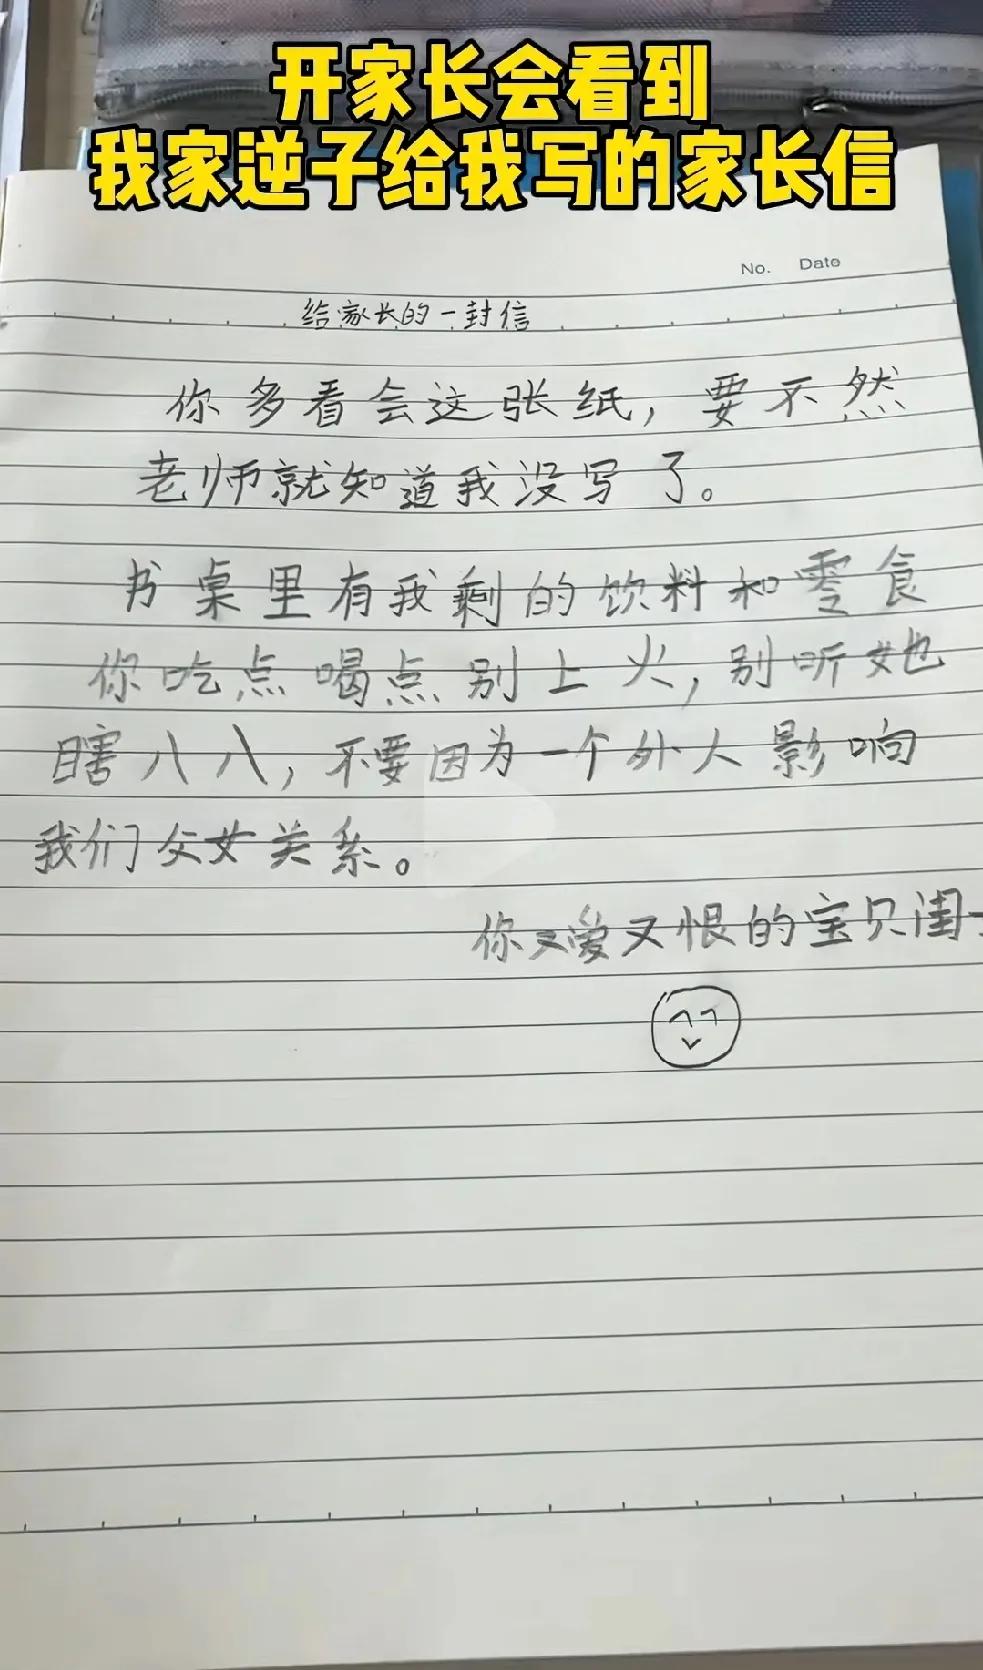 开家长会看到
我家逆子给我写的家长信
No. Date
给家长的一封信
你多看会这张纸，要不然
老师就知道我没写了。
书桌里有我剩的饮料和零食
你吃点喝点别上火，别听她
瞎八八，不要因为一个外人影响
我们父女关系。
你又爱又恨的宝贝闺